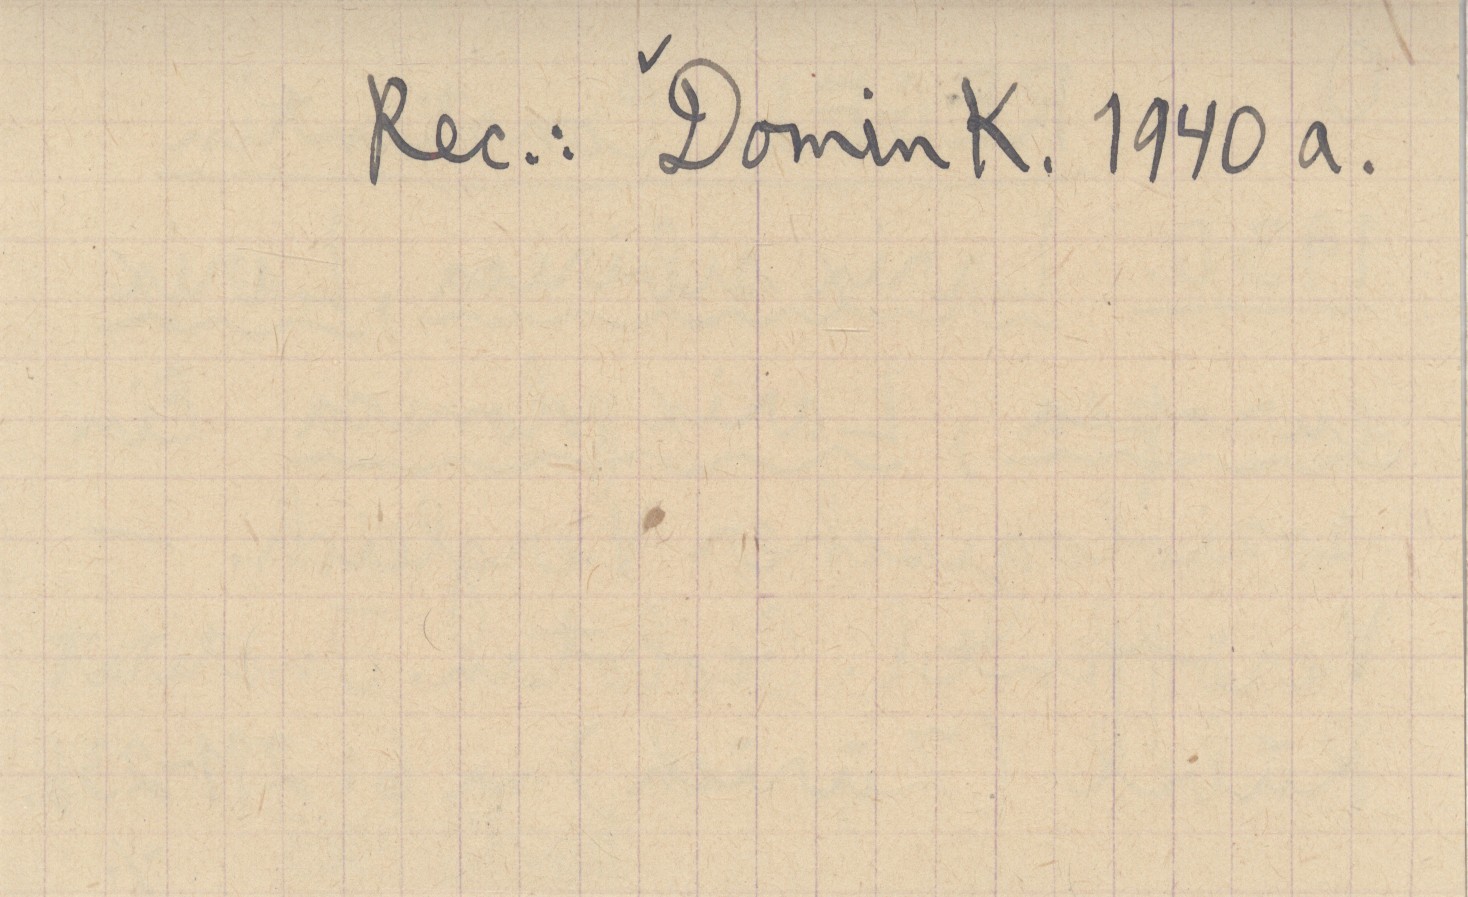 Rec.: ✓Domin K. 1940 a.